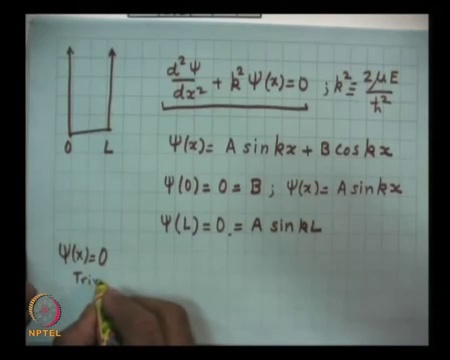 d²Ψ/dx² + k²Ψ(x)=0 ; k² = 2μE/ħ²
0 L
Ψ(x)= A sinkx + B coskx
Ψ(0)=0=B ; Ψ(x)= A sinkx
Ψ(L)=0.= A sinkL
Ψ(x)=0
Triv
NPTEL